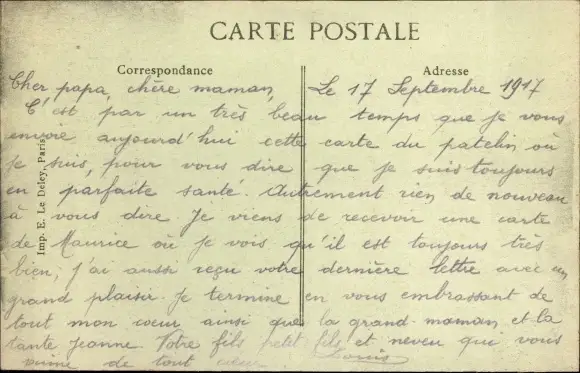 CARTE POSTALE
Correspondance
Adresse
Imp. E. Le Deley, Paris
Le 17 Septembre 1917
Cher papa, chère maman,
C'est par un très beau temps que je vous
envoie aujourd'hui cette carte du patelin où
je suis, pour vous dire que je suis toujours
en parfaite santé. Autrement rien de nouveau
à vous dire Je viens de recevoir une carte
de Maurice où je vois qu'il est toujours très
bien, j'ai aussi reçu votre dernière lettre avec un
grand plaisir. Je termine en vous embrassant de
tout mon cœur ainsi que la grand-maman, et la
tante Jeanne. Votre fils petit fils et neveu que vous
aime de tout cœur Louis